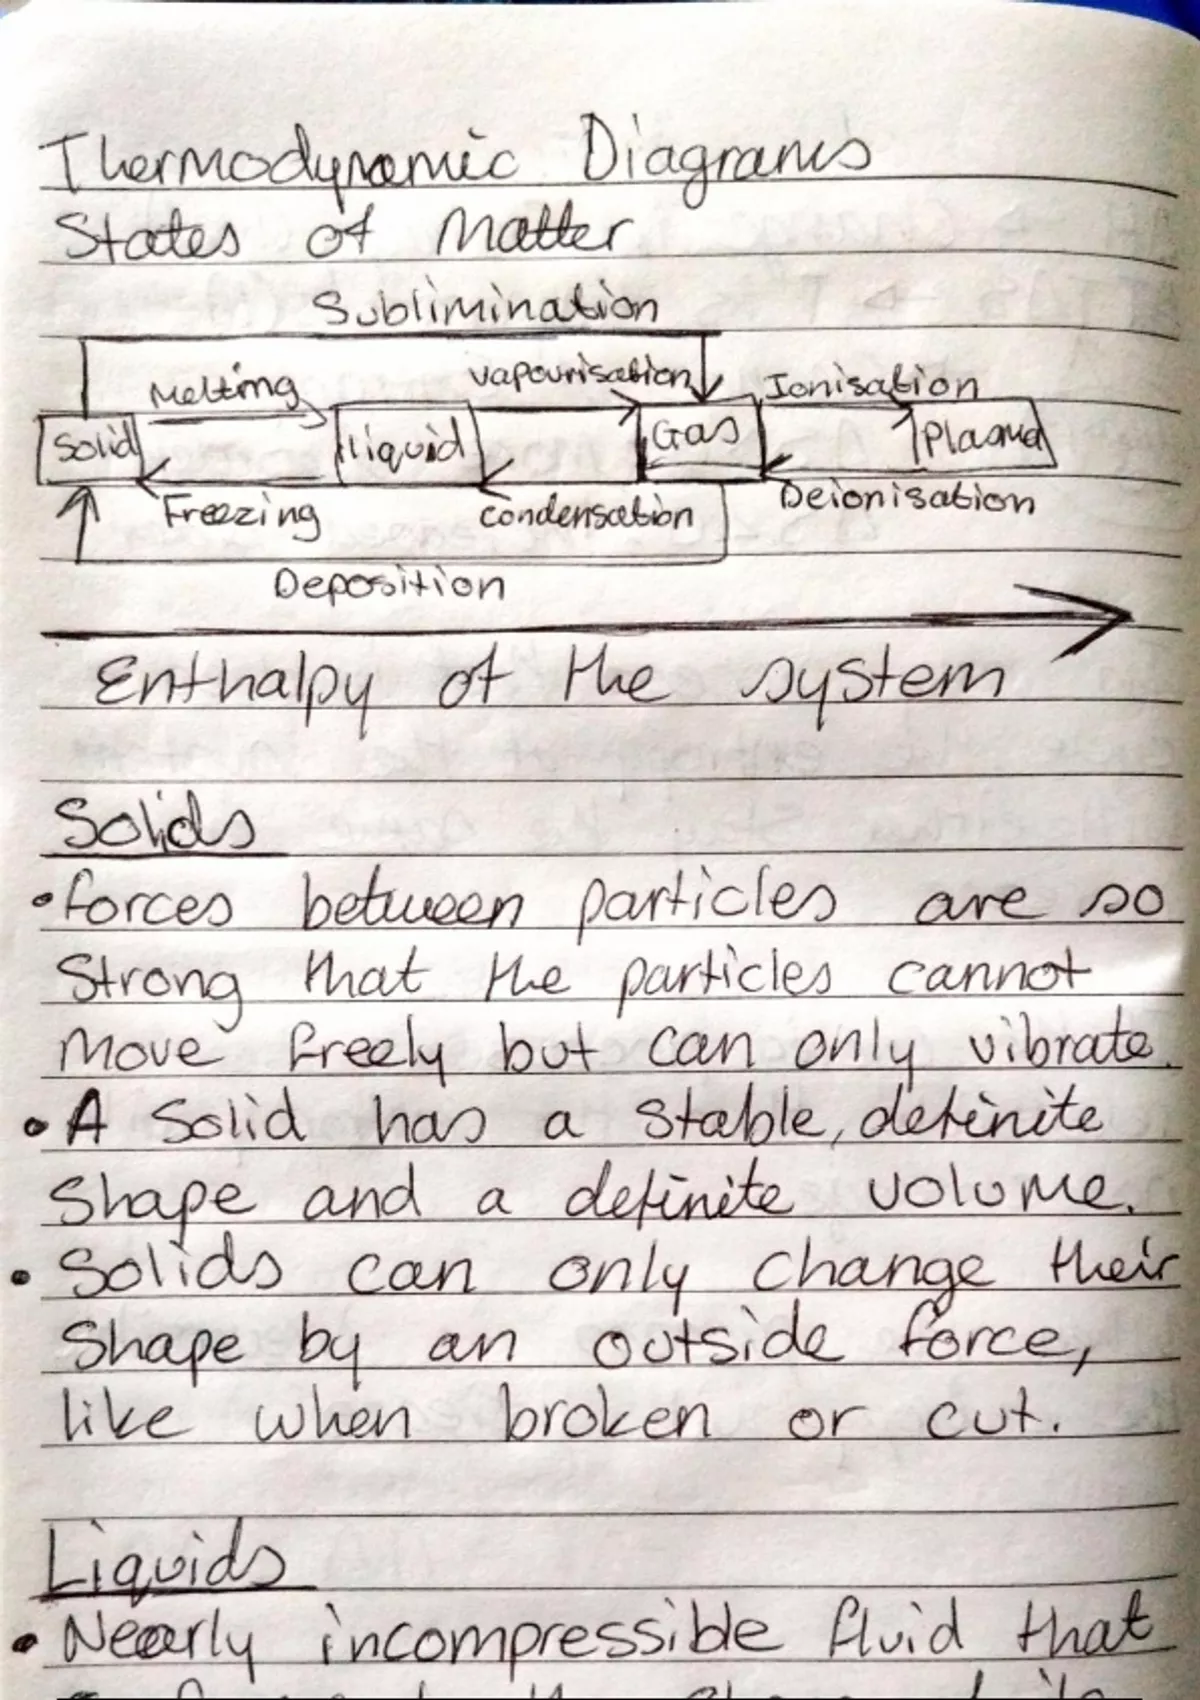 Thermodynamic Diagrams
States of Matter
Sublimination
Melting vapourisation Ionisation
Solid liquid Gas Plasma
Freezing condensation Deionisation
Deposition
Enthalpy of the system
Solids
• forces between particles are so
strong that the particles cannot
move freely but can only vibrate.
• A solid has a stable, definite
shape and a definite volume.
• Solids can only change their
shape by an outside force,
like when broken or cut.
Liquids
• Nearly incompressible fluid that